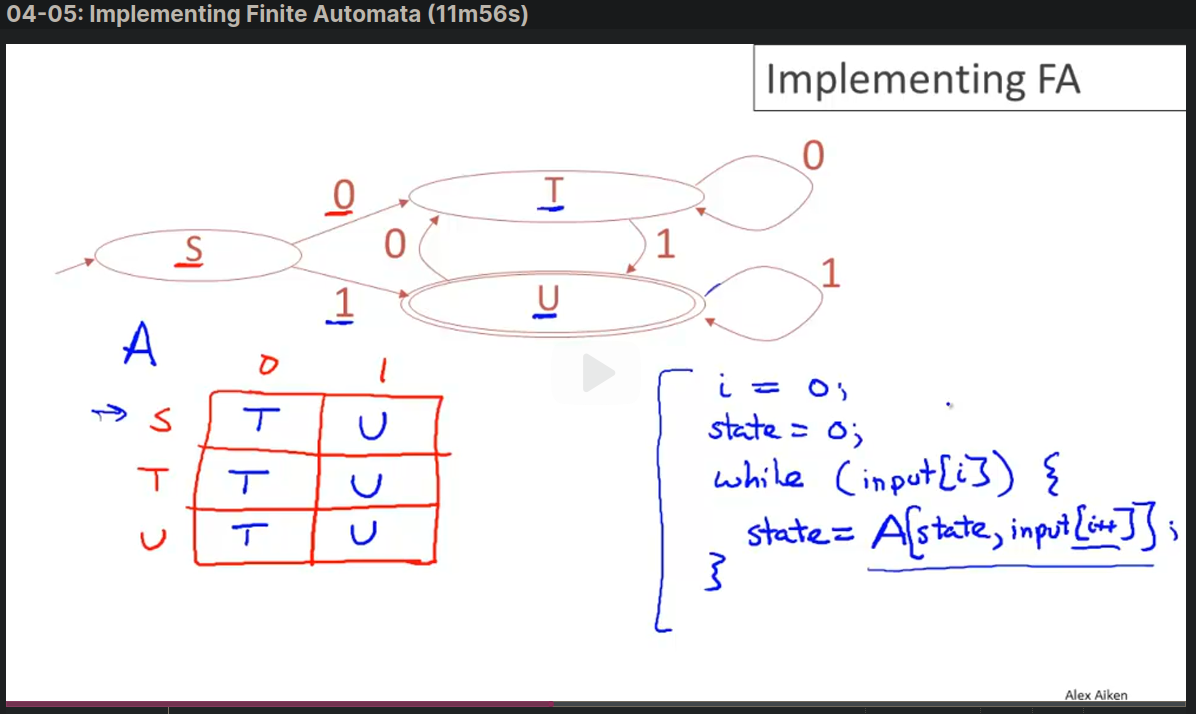 04-05: Implementing Finite Automata (11m56s)
Implementing FA
0
T
0
S
0
1
1
U
1
A
0 1
S T U
T T U
U T U
i = 0;
state = 0;
while (input[i]) {
state = A[state, input[i++]];
}
Alex Aiken